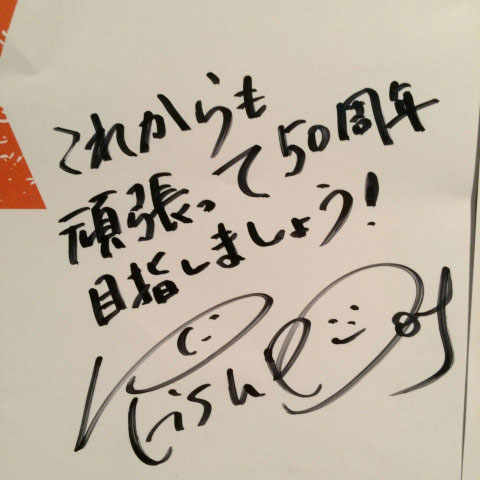 これからも
頑張って50周年
目指しましょう!